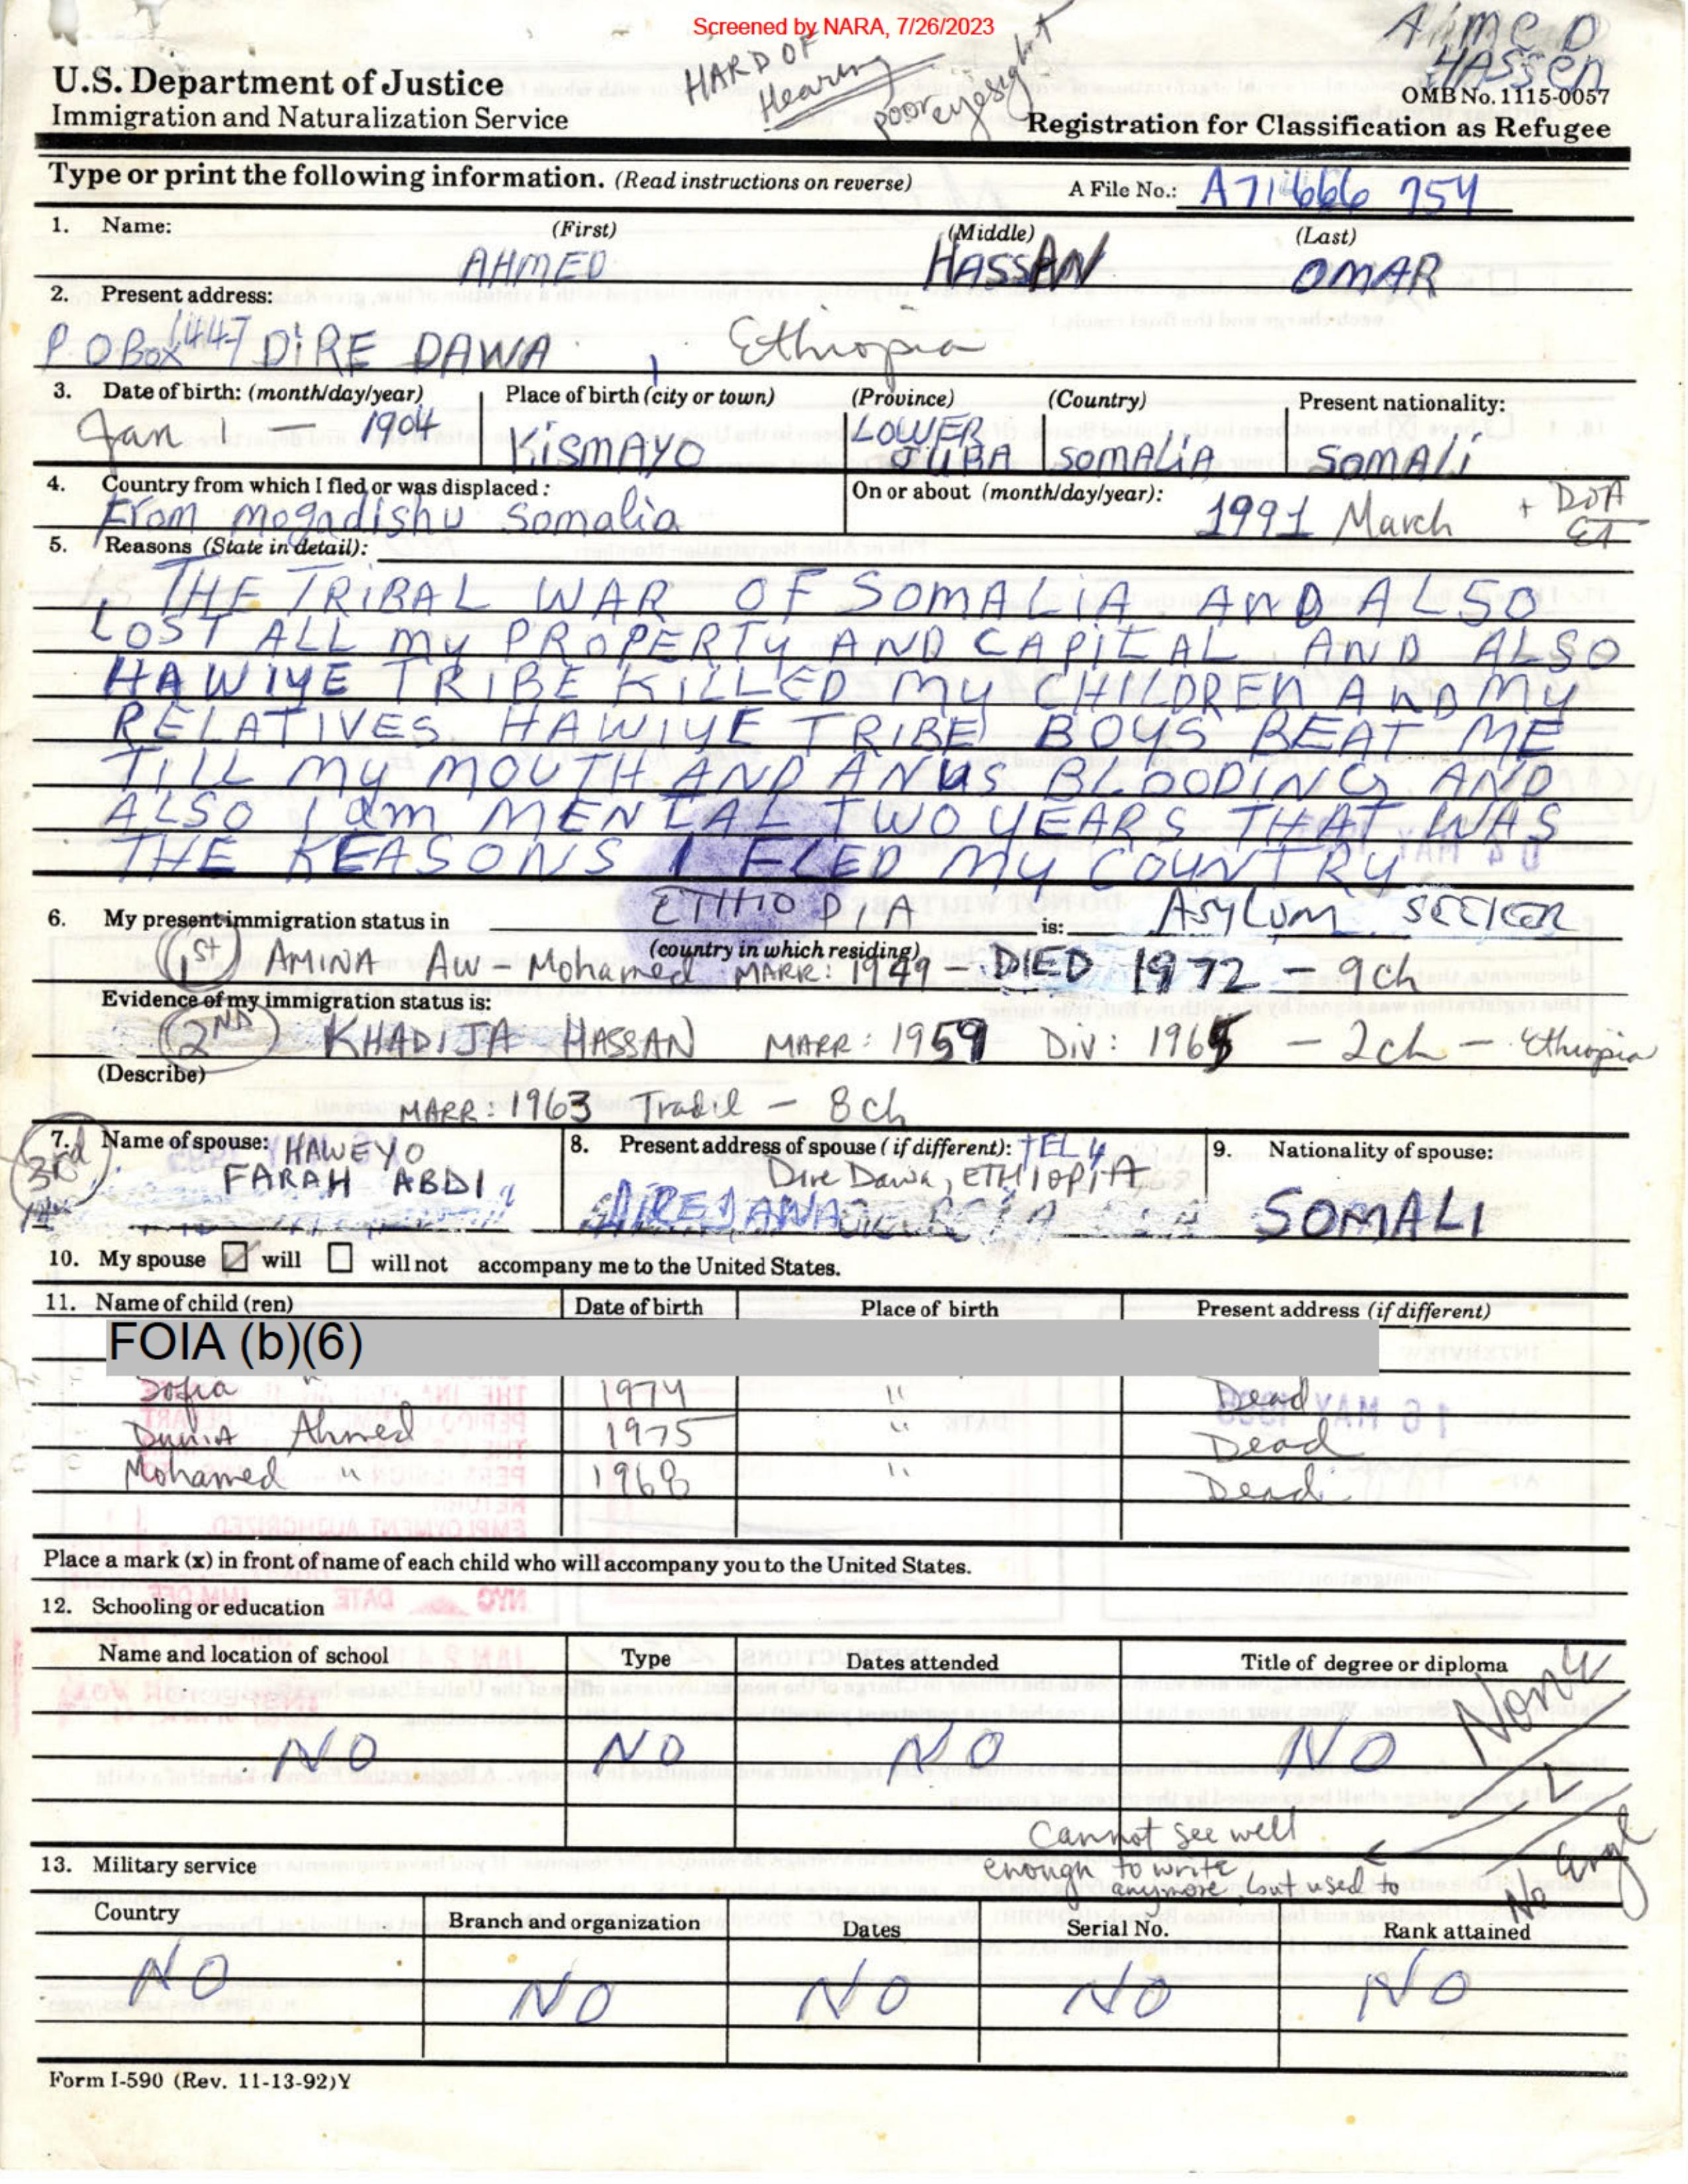 Screened by NARA, 7/26/2023
HARD OF
Hearing
poor eyesight
Ahmed
Hassen
U.S. Department of Justice
Immigration and Naturalization Service
OMB No. 1115-0057
Registration for Classification as Refugee
Type or print the following information. (Read instructions on reverse)
A File No.: A71 666 754
1. Name: (First) (Middle) (Last)
AHMED HASSAN OMAR
2. Present address:
P.O Box 1447 DiRE DAWA, Ethiopia
3. Date of birth: (month/day/year) Place of birth (city or town) (Province) (Country) Present nationality:
Jan 1 - 1904 KiSMAYO LOWER JUBA SOMALiA SOMALi
4. Country from which I fled or was displaced: On or about (month/day/year):
From Mogadishu Somalia 1991 March + DOA ET
5. Reasons (State in detail):
THE TRiBAL WAR OF SOMALiA AND ALSO
LOST ALL My PROPERTY AND CAPiTAL AND ALSO
HAWIYE TRIBE KiLLED My CHiLDREN AND My
RELATIVES HAWIYE TRIBE BOYS BEAT ME
TiLL My MOUTH AND ANUS BLOODiNG AND
ALSO I am MENTAL TWO YEARS THAT WAS
THE REASONS I FLED My COUNTRY
6. My present immigration status in ETHIOPIA is: ASYLUM SEEKER
(country in which residing)
1st AMINA AW-Mohamed MARR: 1949 - DIED 1972 - 9ch
Evidence of my immigration status is:
2ND KHADIJA HASSAN MARR: 1959 DIV: 1965 - 2ch - Ethiopia
(Describe)
MARR: 1963 Trad'l - 8ch
3rd
7. Name of spouse: HAWEYO
FARAH ABDI
8. Present address of spouse (if different):
Dire Dawa, ETHIOPIA
9. Nationality of spouse:
SOMALI
10. My spouse will will not accompany me to the United States.
11. Name of child (ren) Date of birth Place of birth Present address (if different)
FOIA (b)(6)
Sofia " 1974 " Dead
Dunia Ahmed 1975 " Dead
Mohamed " 1968 " Dead
Place a mark (x) in front of name of each child who will accompany you to the United States.
12. Schooling or education
Name and location of school Type Dates attended Title of degree or diploma
None
NO NO NO NO
Cannot see well
enough to write
anymore, but used to
No Engl
13. Military service
Country Branch and organization Dates Serial No. Rank attained
NO NO NO NO NO
Form I-590 (Rev. 11-13-92)Y